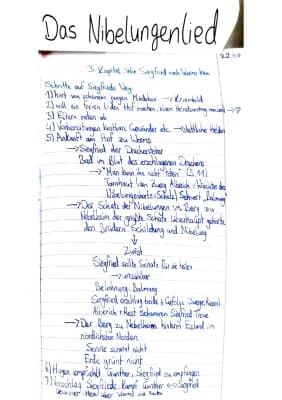 Das Nibelungenlied
22.
3. Kapitel: Wie Siegfried nach Worms kam
Schritte auf Siegfrieds Weg:
1) hört von schönem jungen Mädchen → Kriemhild
2) will sie freien
3) Eltern raten ab
4) Vorbereitungen kostbare Gewänder etc. → stattliche Helden
5) Ankunft am Hof zu Worms
→ Siegfried der Drachentöter
Bad im Blut des erschlagenen Drachens
→ "Man kann ihn nicht töten" (S. 11)
Tarnhaut von Zwerg Alberich = Wächter des
Nibelungenhorts (Schatz) Schwert "Balmung"
→ Der Schatz der Nibelungen im Berg zu
Nibelheim der größte Schatz überhaupt gehörte
den Brüdern Schilbung und Nibelung
↓
Zwist
Siegfried sollte Schatz für sie teilen
→ unzählbar
Belohnung: Balmung
Siegfried erschlug beide + Gefolge
Alberich + Rest schwören Siegfried Treue
→ Der Berg zu Nibelheim hinterm Eisland im
nördlichsten Norden
Sonne scheint nicht
Erde grünt nicht
6) Hagen empfiehlt Gunther, Siegfried zu empfangen
7) Vorschlag Siegfrieds: Kampf Gunther ↔ Siegfried
Gewinner: Herr über Worms und Xanten